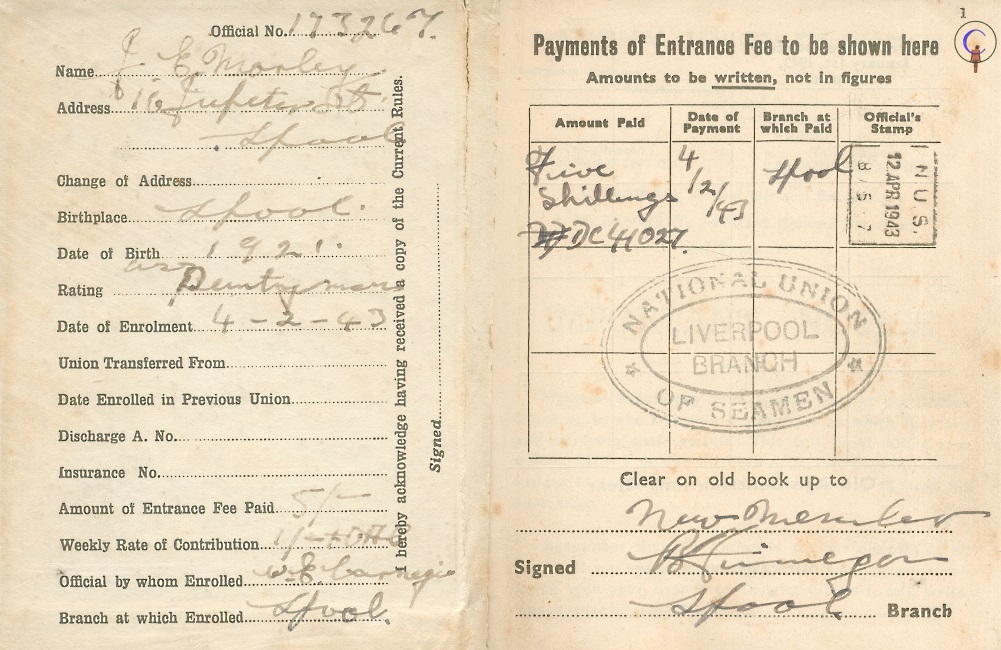 Official No. 173267.
Name J. E. Morley
Address 16 Jupiter St.
L'pool
Change of Address
Birthplace L'pool.
Date of Birth 1921.
Rating Asst Pantryman
Date of Enrolment 4-2-43
Union Transferred From
Date Enrolled in Previous Union
Discharge A. No.
Insurance No.
Amount of Entrance Fee Paid 5/-
Weekly Rate of Contribution 1/-
Official by whom Enrolled W. E. Carnegie
Branch at which Enrolled L'pool.
I hereby acknowledge having received a copy of the Current Rules.
Signed
1
Payments of Entrance Fee to be shown here
Amounts to be written, not in figures
Amount Paid Date of Payment Branch at which Paid Official's Stamp
Five Shillings 4/2/43 L'pool
DC 41027.
N U S.
12 APR 1943
B / S 7
NATIONAL UNION OF SEAMEN
LIVERPOOL
BRANCH
Clear on old book up to
New Member
Signed B Finnegan
L'pool Branch